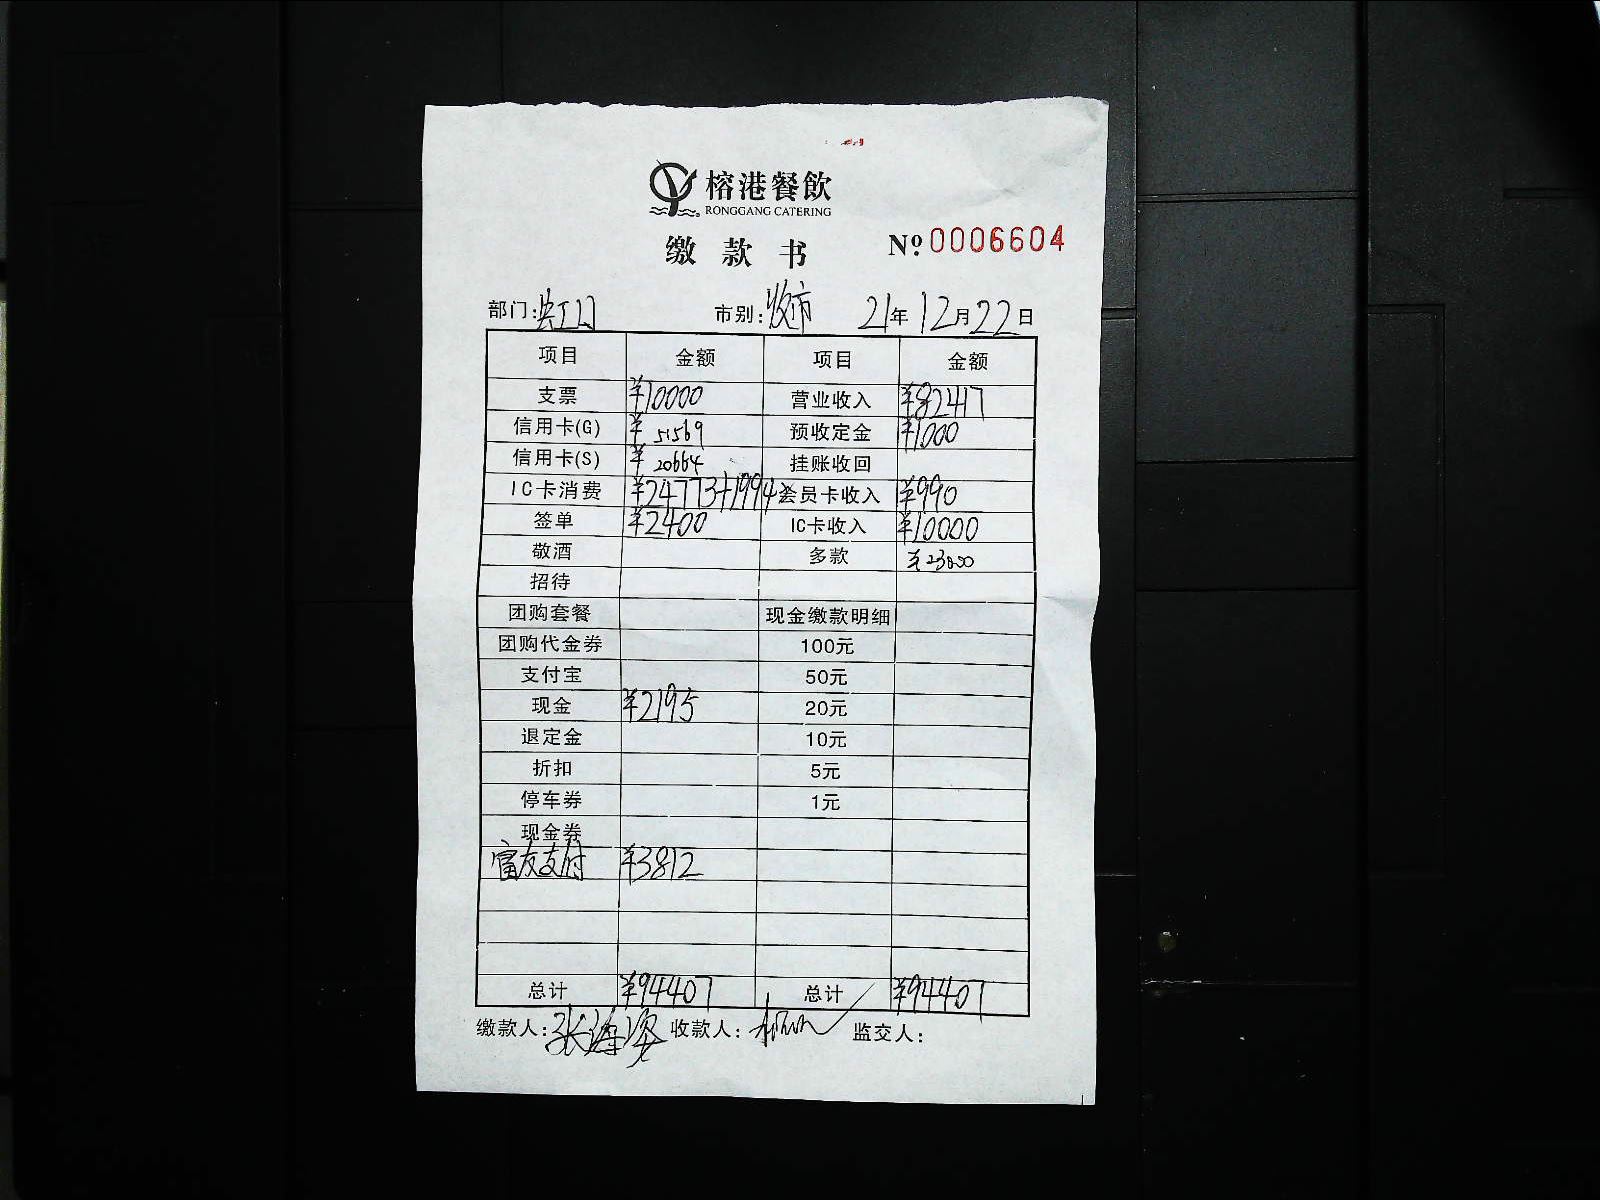 榕港餐飲
RONGGANG CATERING
缴款书
№ 0006604
部门:虹口 市别:收市 21年12月22日
项目 金额 项目 金额
支票 ¥10000 营业收入 ¥82417
信用卡(G) ¥51569 预收定金 ¥1000
信用卡(S) ¥20664 挂账收回
IC卡消费 ¥24773+1994 会员卡收入 ¥990
签单 ¥2400 IC卡收入 ¥10000
敬酒 多款 ¥23000
招待
团购套餐 现金缴款明细
团购代金券 100元
支付宝 50元
现金 ¥2195 20元
退定金 10元
折扣 5元
停车券 1元
现金券
富友支付 ¥3812
总计 ¥94407 总计 ¥94407
缴款人:张海 收款人: 监交人: